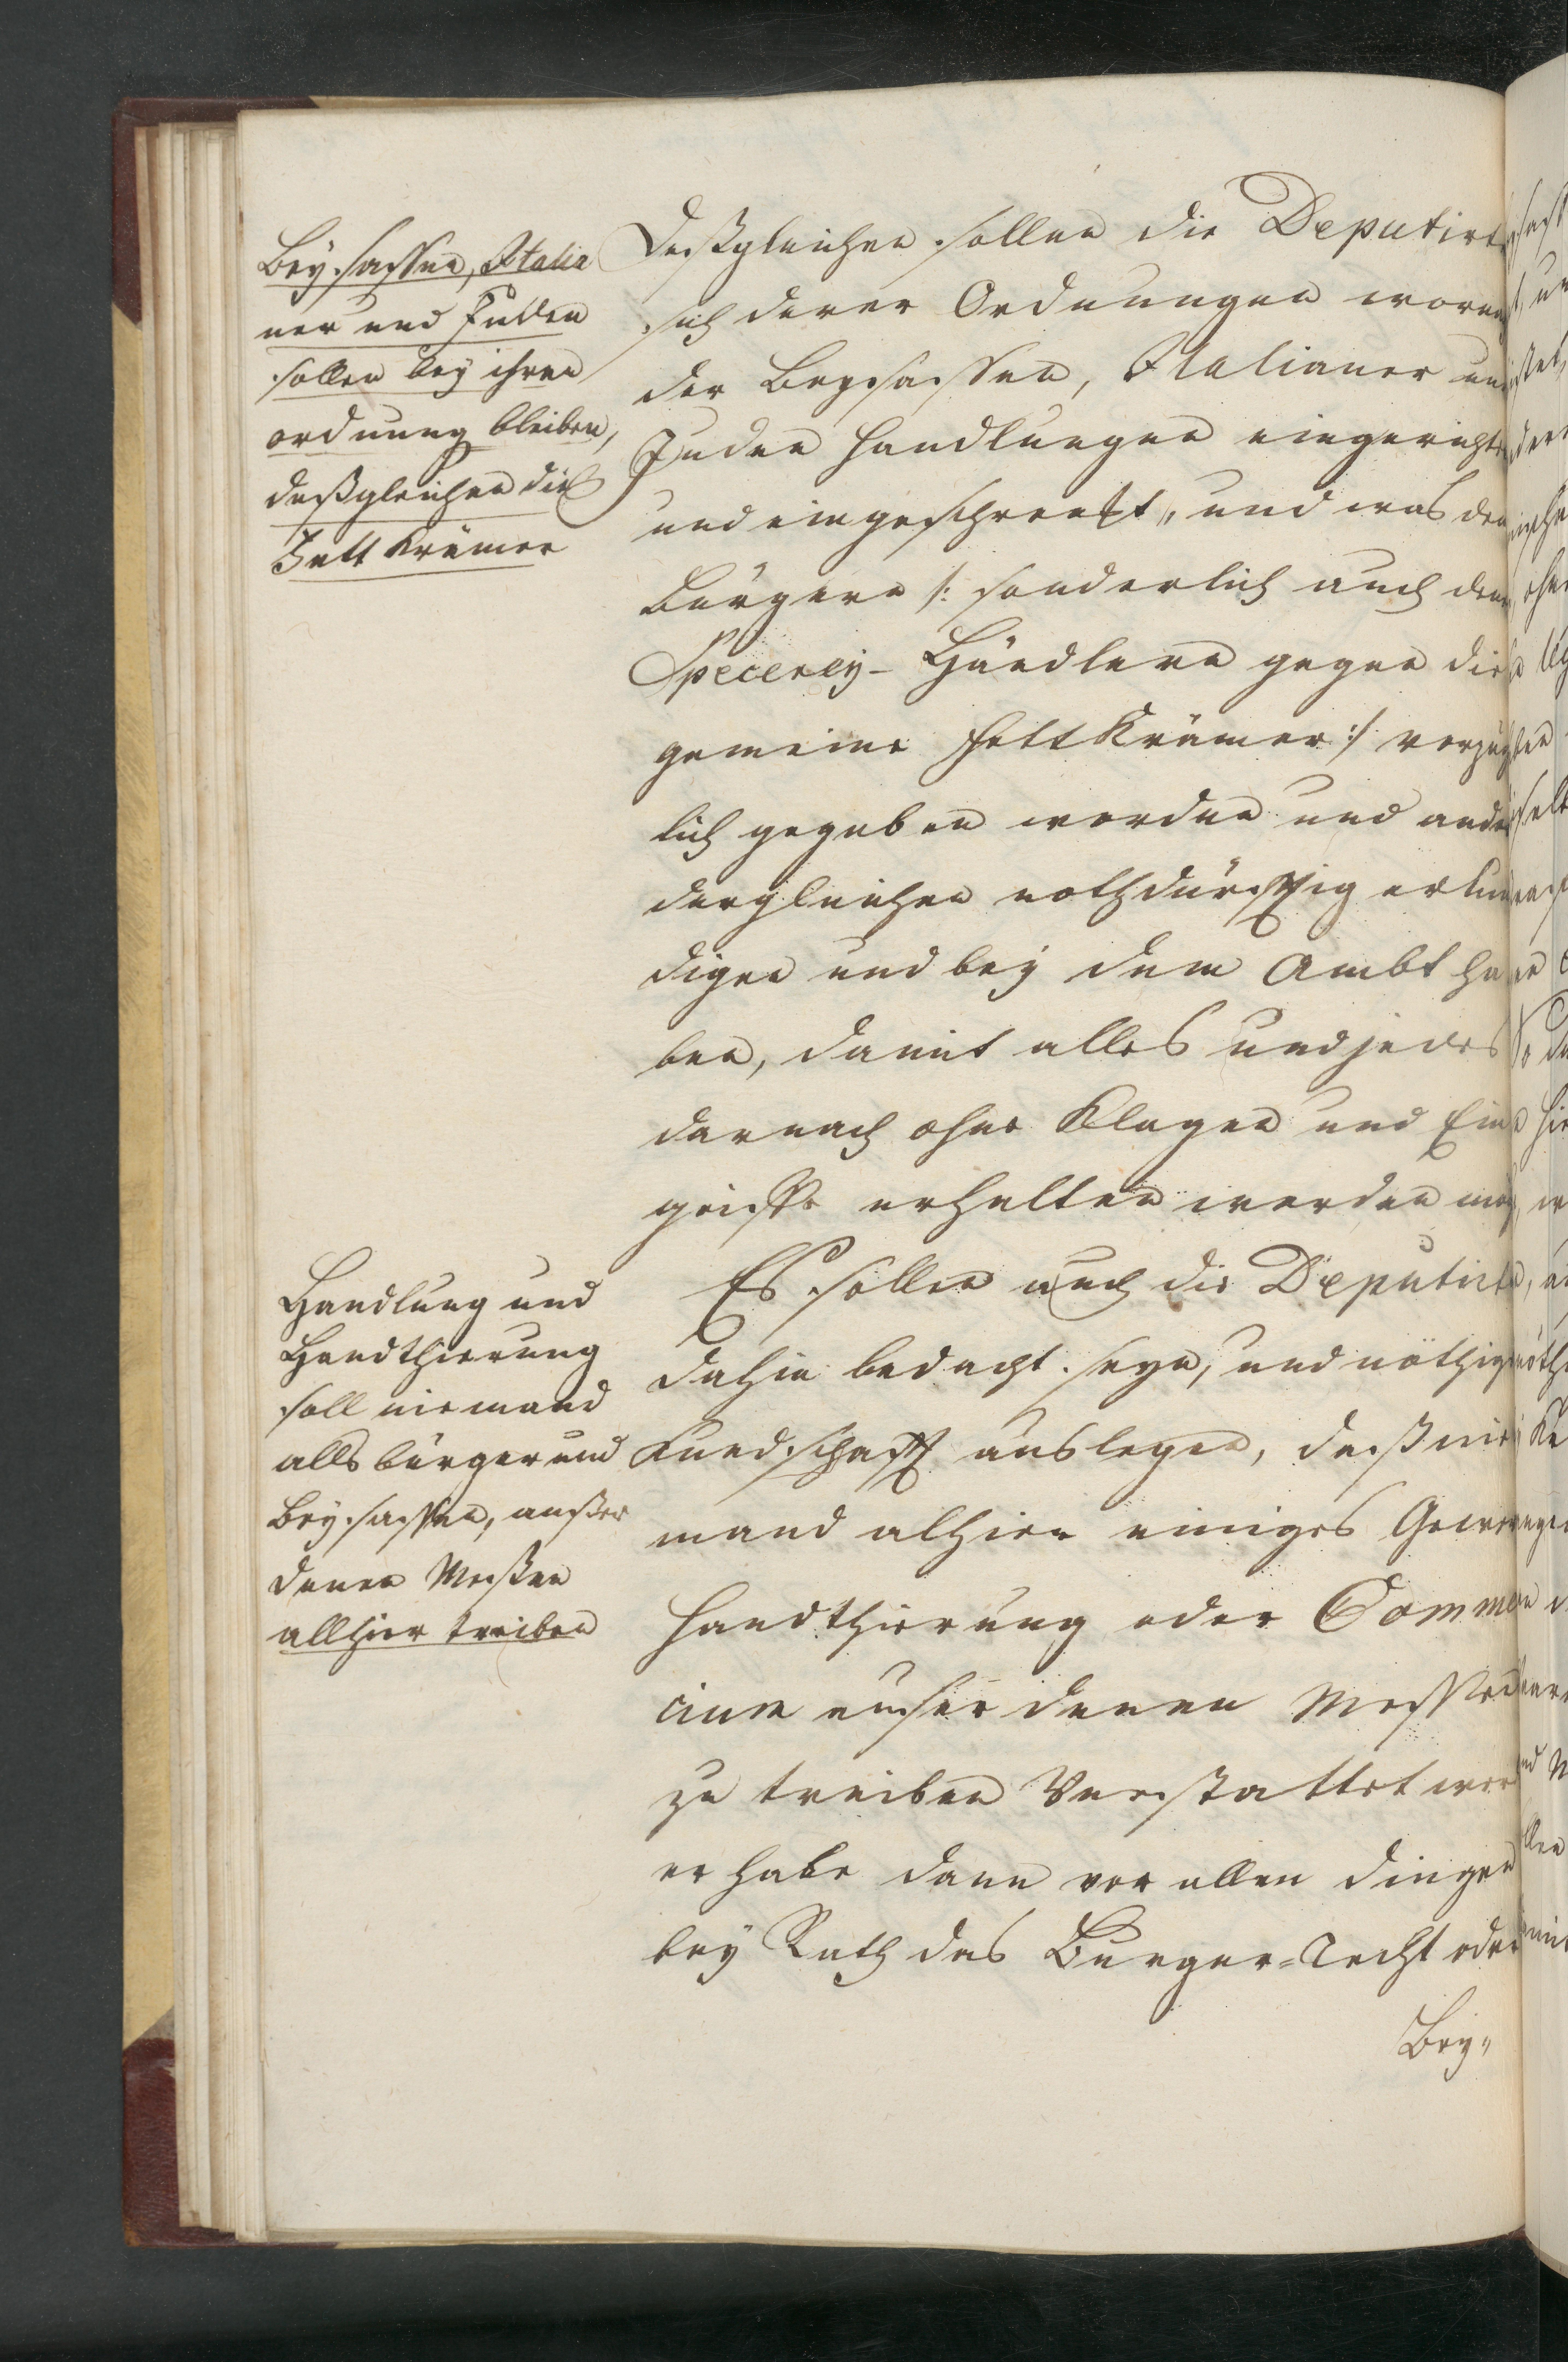 Beysassen, Italia
ner und Juden
sollen bey ihrer
ordnung bleiben,
deßgleichen die
Fett Krämer
Deßgleichen sollen die Deputirte
sich derer Ordnungen
der Beysassen, Italianer und
Juden Handlungen eingerichtet
und eingeschrenkt, und was den
Bürgern /: sonderlich auch denen
Specerey-Händlern gegen die
gemeine Fett Krämer :/ verzüg
lich gegeben worden und andere
dergleichen nothdürfftig erkun
digen und bey dem Ambt ha
ben, damit alles und jedes
darnach ohne Klagen und Ein
griffe erhalten werden mög
Handlung und
Handthierung
soll niemand
alls bürger und
Beysassen, außer
denen Meßen
allhier treiben
Es sollen auch die Deputirte
dahin bedacht seyn, und nöthige
Kundschafft auslegen, daß nie
mand alhier einiges
Handthierung oder Commer
cium außer denen Messen
zu treiben Verstattet
er habe dann vor allen dingen
bey Rath das Burger-Recht oder
Bey"